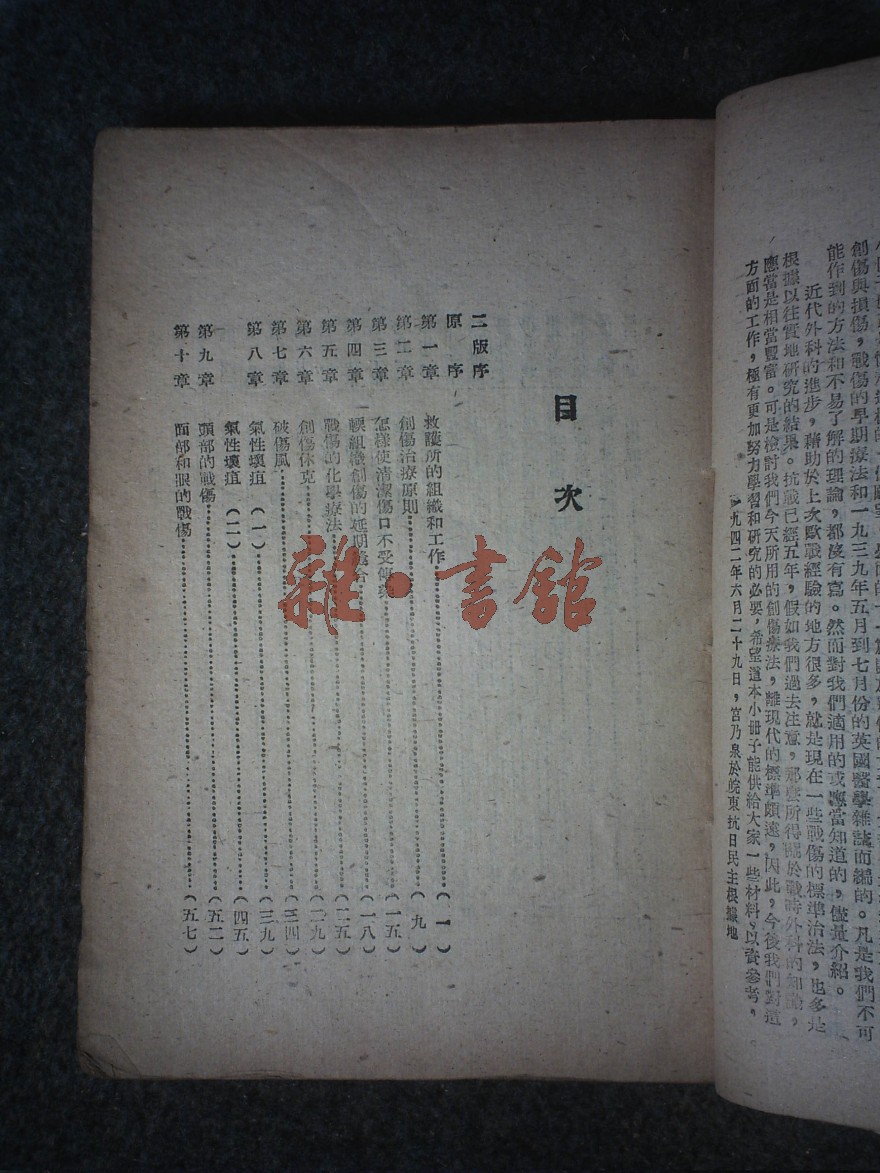 創傷與損傷，戰傷的早期療法和一九三九年五月到七月份的英國醫學雜誌而編的。凡是我們不可
能作到的方法和不易了解的理論，都沒有寫。然而對我們適用的或應當知道的，儘量介紹。
近代外科的進步，藉助於上次歐戰經驗的地方很多，就是現在一些戰傷的標準治法，也多是
根據以往實地研究的結果。抗戰已經五年，假如我們過去注意，那麼所得關於戰時外科的知識，
應當是相當豐富。可是檢討我們今天所用的創傷療法，離現代的標準頗遠，因此，今後我們對這
方面的工作，極有更加努力學習和研究的必要，希望這本小冊子能供給大家一些材料，以資參考，
一九四二年六月二十九日，宮乃泉於皖東抗日民主根據地
目次
二版序
原序
第一章 救護所的組織和工作……（一）
第二章 創傷治療原則……（九）
第三章 怎樣使清潔傷口不受傳染……（一五）
第四章 軟組織創傷的延期縫合……（一八）
第五章 戰傷的化學療法……（二五）
第六章 創傷休克……（二九）
第七章 破傷風……（三四）
第八章 氣性壞疽（一）……（三九）
氣性壞疽（二）……（四五）
第九章 頭部的戰傷……（五二）
第十章 面部和眼的戰傷……（五七）
雜·書館